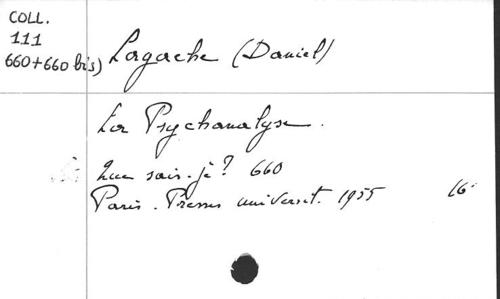 COLL.
111
660+660 bis) Lagache (Daniel)
La Psychanalyse.
Que sais-je? 660
Paris. Presses universit. 1955 16°